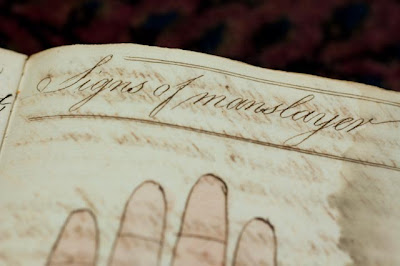 Signs of manslayer